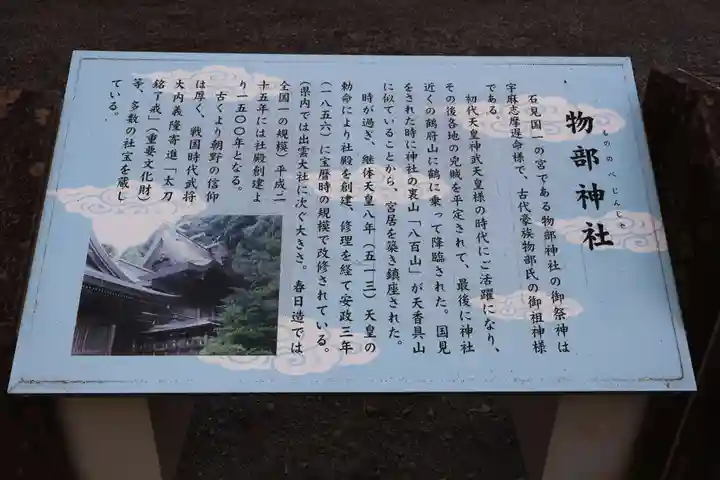 物部神社
もののべじんじゃ
石見国一の宮である物部神社の御祭神は
宇麻志摩遅命様で、古代豪族物部氏の御祖神様
である。
初代天皇神武天皇様の時代にご活躍になり、
その後各地の兇賊を平定されて、最後に神社
近くの鶴府山に鶴に乗って降臨された。国見
をされた時に神社の裏山「八百山」が天香具山
に似ていることから、宮居を築き鎮座された。
時が過ぎ、継体天皇八年(五一三)天皇の
勅命により社殿を創建、修理を経て安政三年
(一八五六)に宝暦時の規模で改修されている。
(県内では出雲大社に次ぐ大きさ。春日造では
全国一の規模)平成二
十五年には社殿創建よ
り一五〇〇年となる。
古くより朝野の信仰
は厚く、戦国時代武将
大内義隆寄進「太刀
銘了戒」(重要文化財)
等、多数の社宝を蔵し
ている。